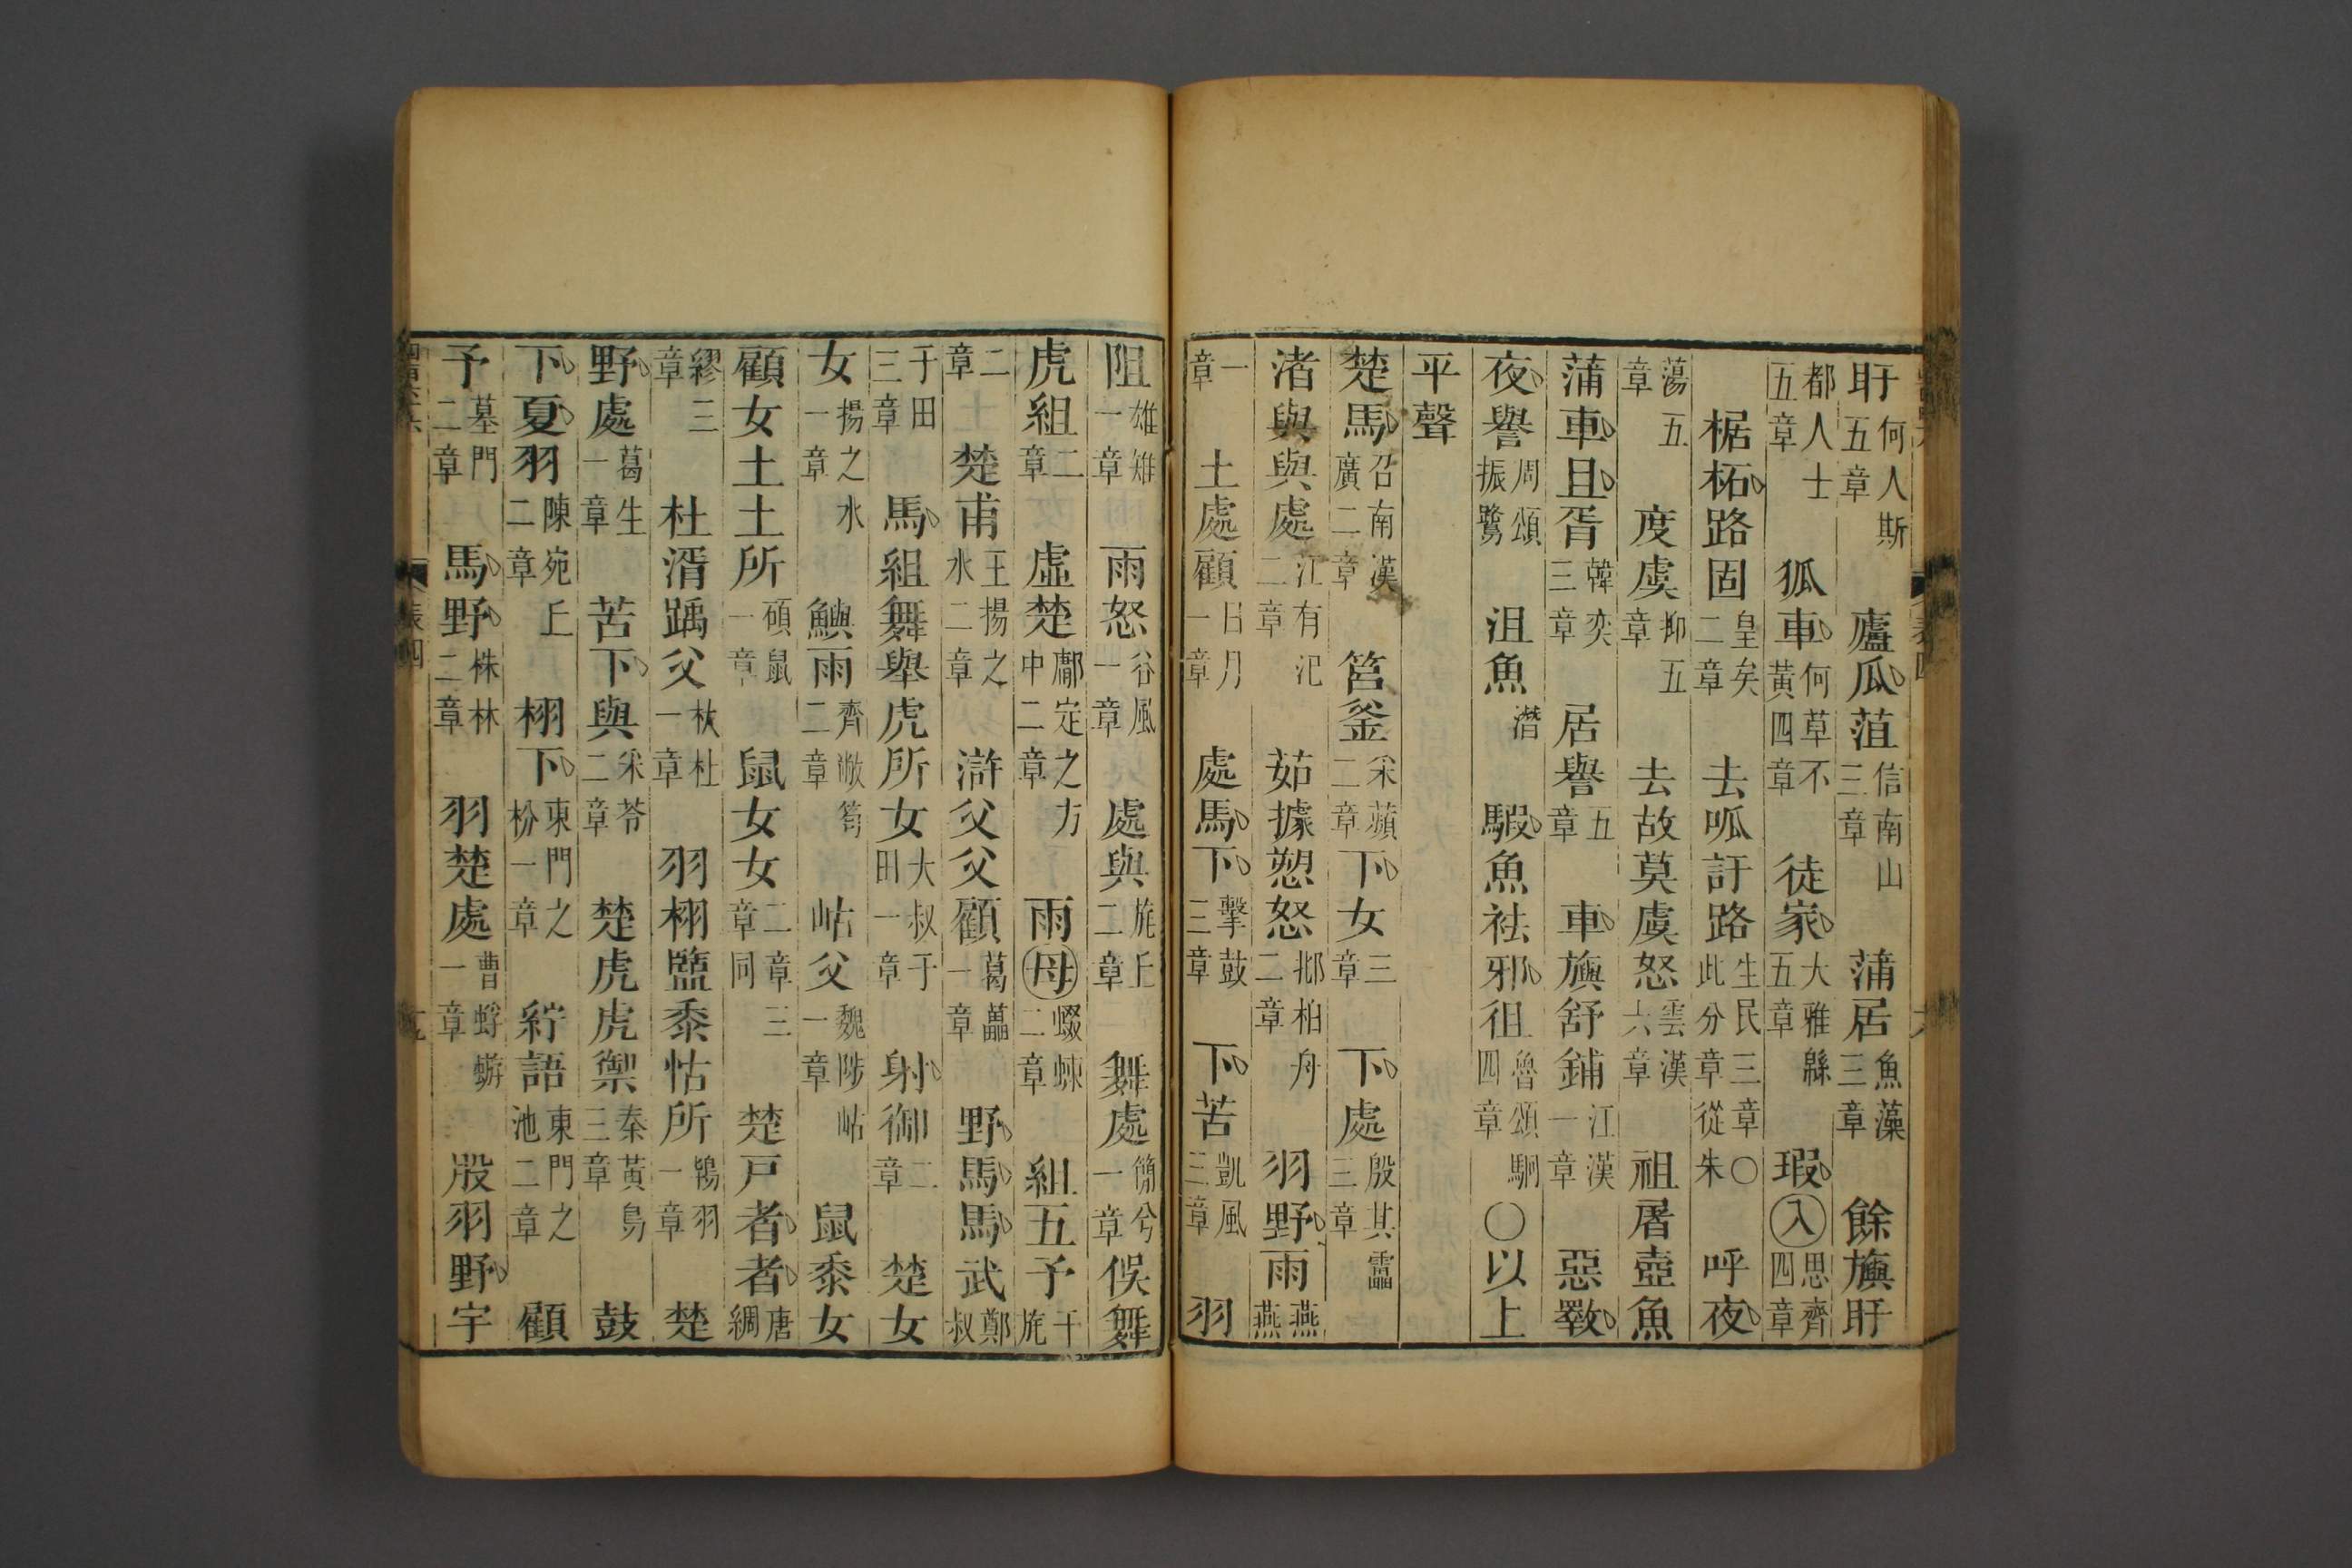 盱何人斯五章　廬瓜菹信南山三章　蒲居魚藻三章　餘旟盱
都人士五章　狐車何草不黃四章　徒家大雅緜五章　瑕入思齊四章
椐柘路固皇矣二章　去呱訏路生民三章此分章從朱○　呼夜
蕩五章　度虞抑五章　去故莫虞怒雲漢六章　祖屠壺魚
蒲車且胥韓奕三章　居譽五章　車旟舒鋪江漢一章　惡斁
夜譽周頌振鷺　沮魚潛　騢魚祛邪徂魯頌駉四章○以上
平聲
楚馬召南漢廣二章　筥釜采蘋二章下女三章　下處殷其靁三章
渚與與處江有汜二章　茹據愬怒邶柏舟二章　羽野雨燕燕
一章　土處顧日月一章　處馬下擊鼓三章　下苦凱風三章　羽
阻雄雉一章　雨怒谷風一章　處與旄丘二章　舞處簡兮一章俁舞
虎組二章　虛楚鄘定之方中二章　雨母蝃蝀二章　組五予干旄
二章　楚甫王揚之水二章　滸父父顧葛藟一章　野馬馬武鄭叔
于田三章　馬組舞舉虎所女大叔于田一章　射御二章　楚女
女揚之水一章　鱮雨齊敝笱二章　岵父魏陟岵一章　鼠黍女
顧女土土所碩鼠一章　鼠女女二章三章同　楚戶者者唐綢
繆三章　杜湑踽父杕杜一章　羽栩盬黍怙所鴇羽一章　楚
野處葛生一章　苦下與采苓二章　楚虎虎禦秦黃鳥三章　鼓
下夏羽陳宛丘二章　栩下東門之枌一章　紵語東門之池二章　顧
予墓門二章　馬野株林二章　羽楚處曹蜉蝣一章　股羽野宇
表四